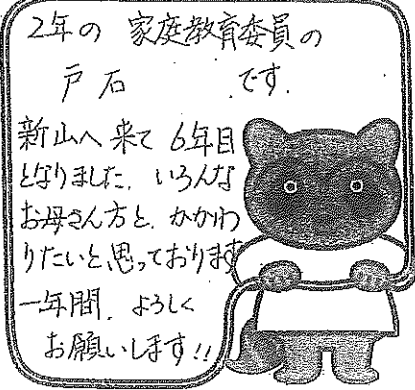 2年の 家庭教育委員の
戸石 です.
新山へ来て 6年目
となりました. いろんな
お母さん方と. かかわ
りたいと思っております
一年間. よろしく
お願いします!!